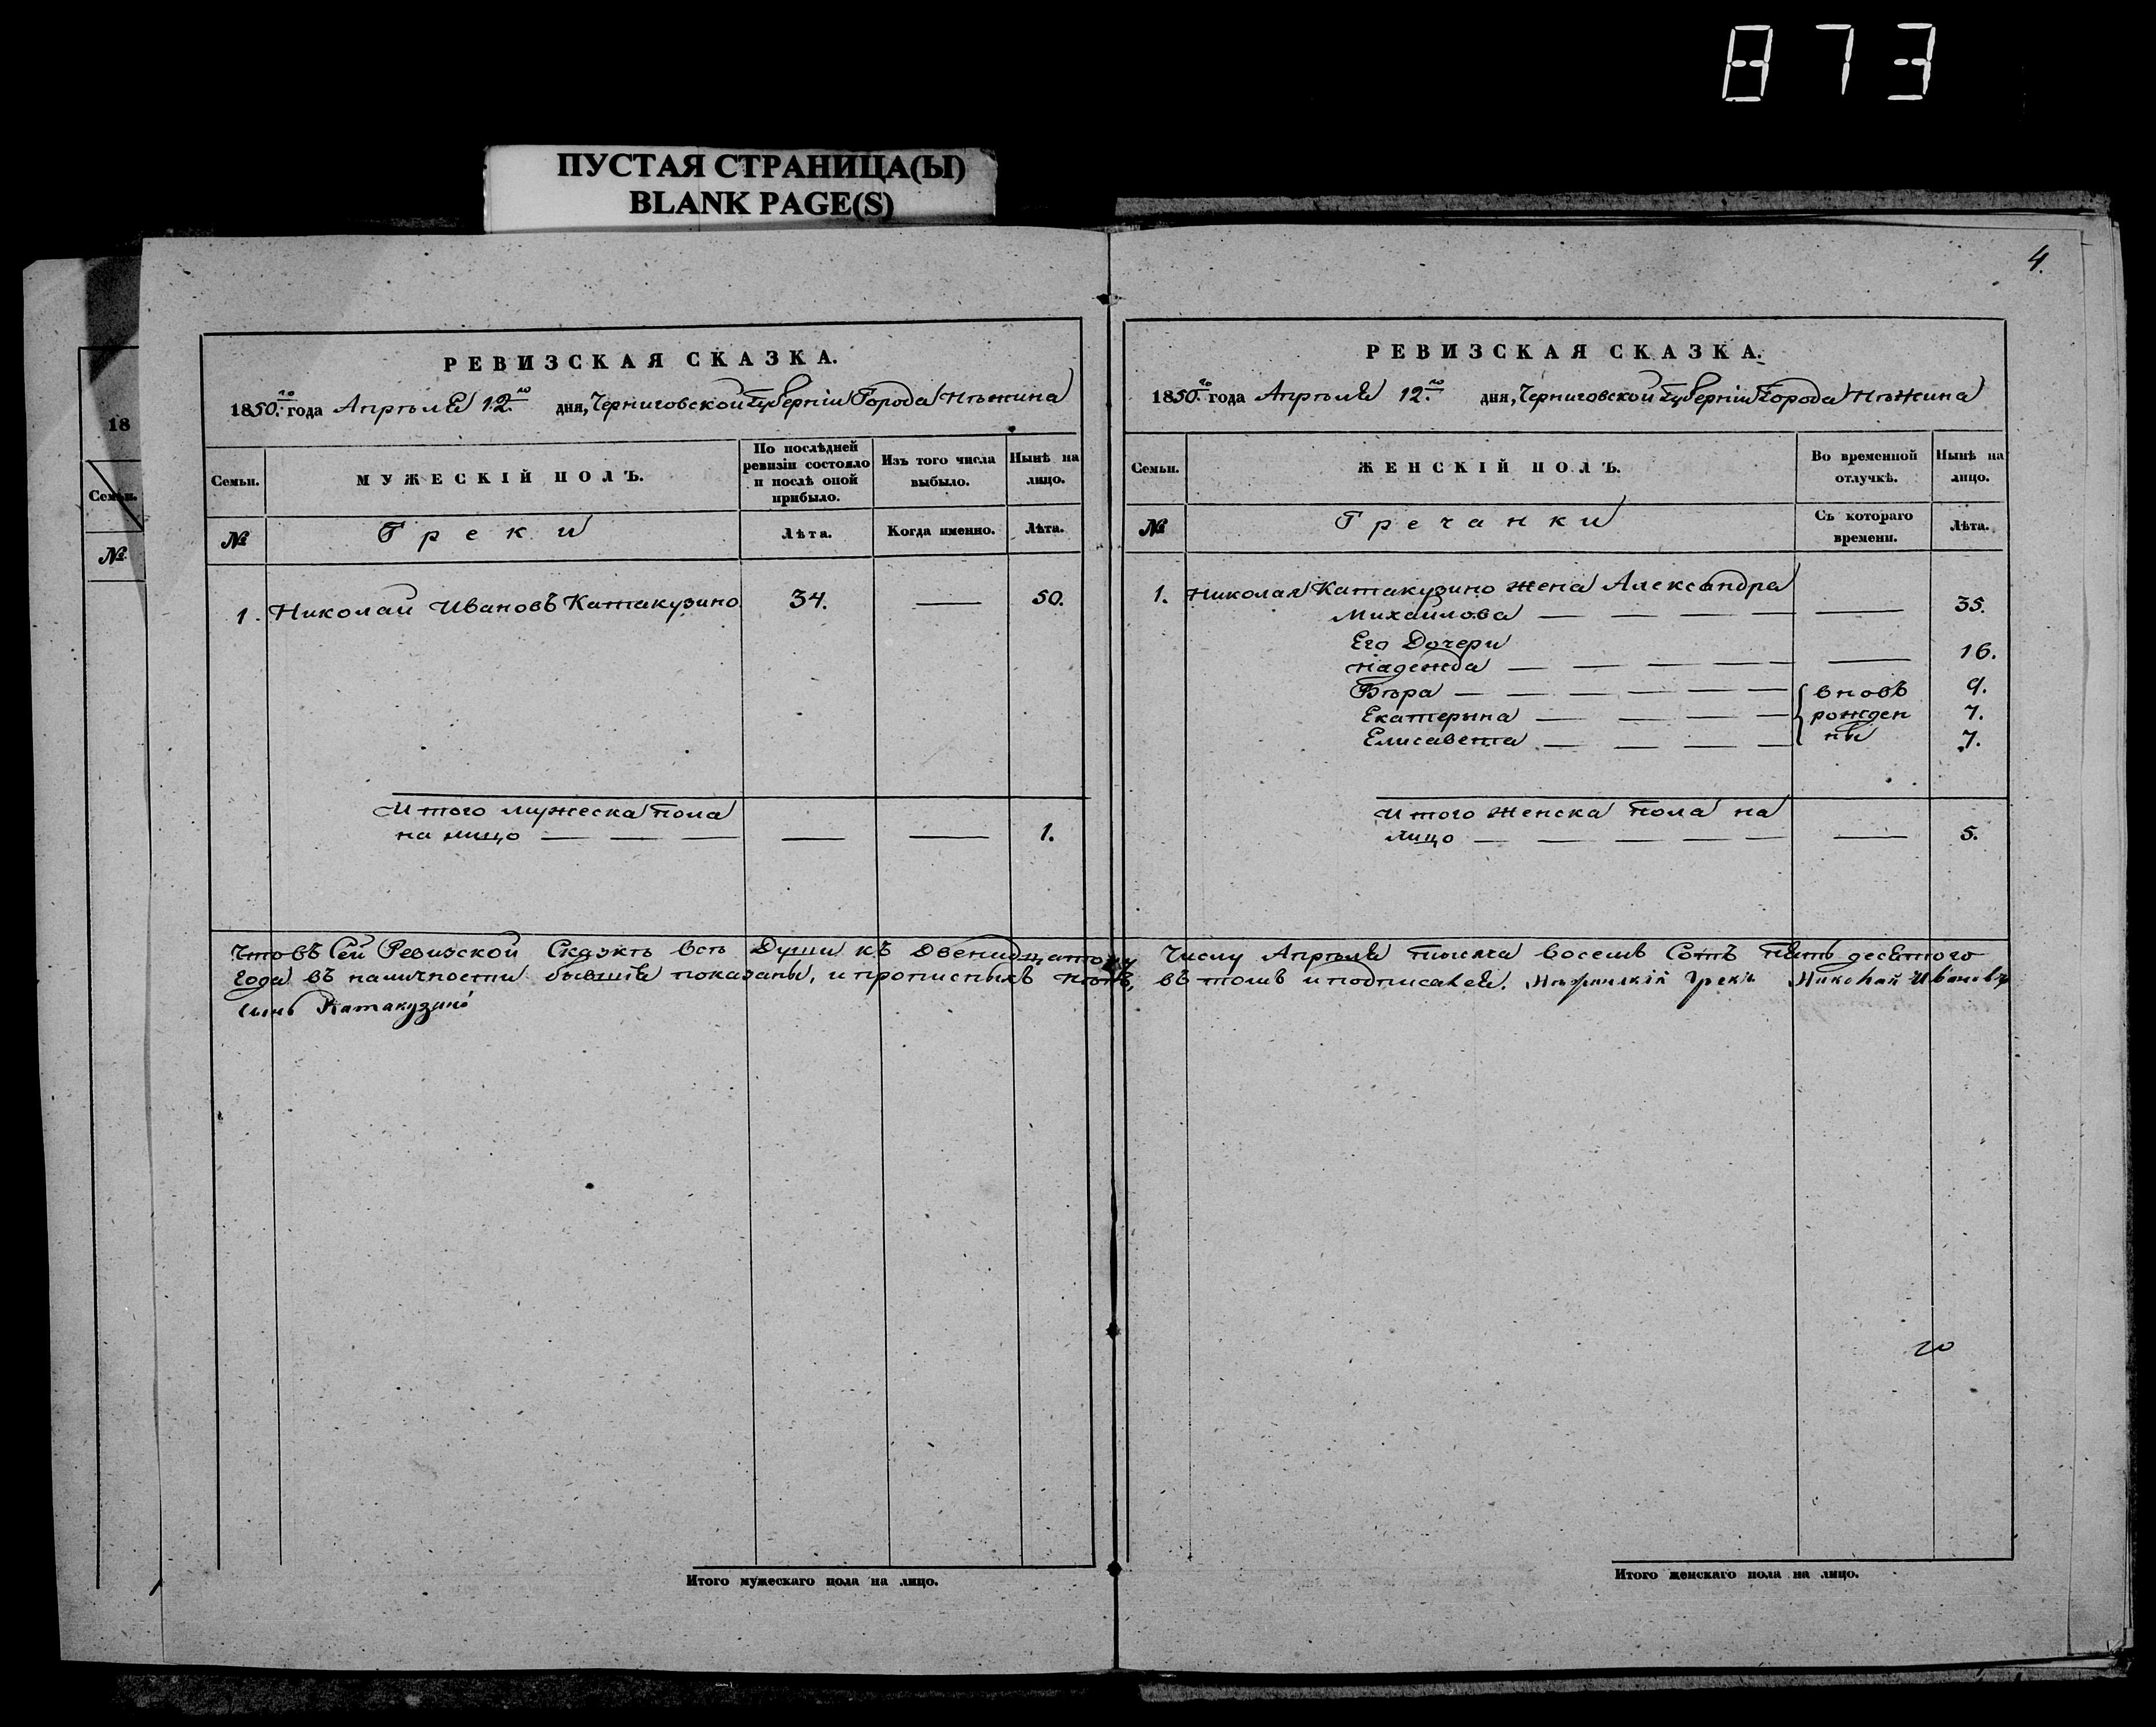 873
ПУСТАЯ СТРАНИЦА(Ы)
BLANK PAGE(S)
18
Семьи.
№
РЕВИЗСКАЯ СКАЗКА.
1850.го года Апрѣля 12.го дня, Черниговской Губерніи Города Нѣжина
Семьи.
МУЖЕСКІЙ ПОЛЪ.
По послѣдней
ревизіи состояло
и послѣ оной
прибыло.
Изъ того числа
выбыло.
Нынѣ на
лицо.
№
Греки
Лѣта.
Когда именно.
Лѣта.
1. Николай Ивановъ Катакузино 34. — 50.
Итого мужеска пола
на лицо — — — — — 1.
Что въ Сей Ревизской Сказкѣ всѣ Души къ Двенидцатому
Года въ наличности бывшія показаны, и прописныхъ нѣтъ,
сынъ Катакузино
Итого мужескаго пола на лицо.
4.
РЕВИЗСКАЯ СКАЗКА.
1850.го года Апрѣля 12.го дня, Черниговской Губерніи Города Нѣжина
Семьи.
ЖЕНСКІЙ ПОЛЪ.
Во временной
отлучкѣ.
Нынѣ на
лицо.
№
Гречанки
Съ котораго
времени.
Лѣта.
1. Николая Катакузино жена Александра
Михайлова — — — — — 35.
Его Дочери
Надежда — — — — — — 16.
Вѣра — — — — — — вновь 9.
Екатерына — — — — рожден 7.
Елисавета — — — — ны 7.
Итого Женска пола на
лицо — — — — — — 5.
Числу Апрѣля тысяча восемь Сотъ пять десятого
въ томъ и подписался. Нѣжинскій Грекъ Николай Ивановъ
Итого женскаго пола на лицо.